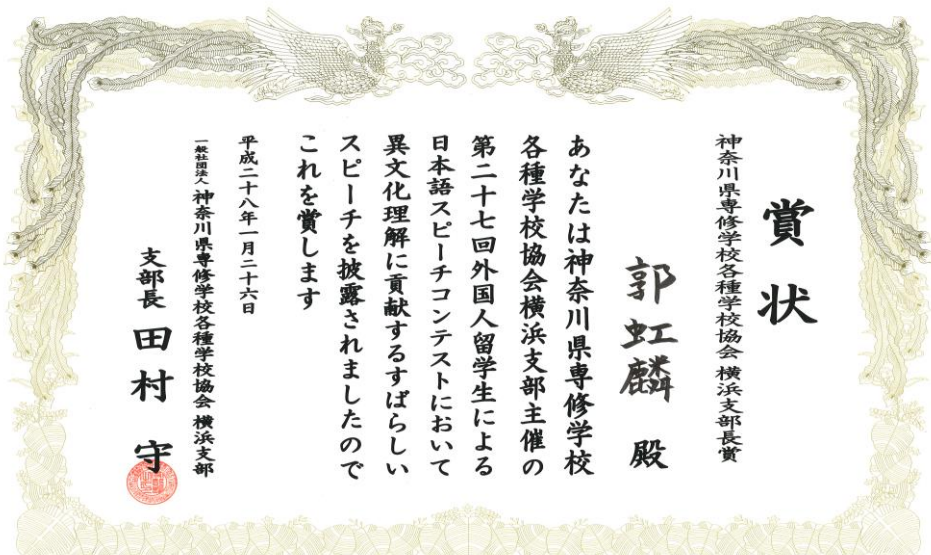 賞状
神奈川県専修学校各種学校協会 横浜支部長賞
郭虹麟 殿
あなたは神奈川県専修学校
各種学校協会横浜支部主催の
第二十七回外国人留学生による
日本語スピーチコンテストにおいて
異文化理解に貢献するすばらしい
スピーチを披露されましたので
これを賞します
平成二十八年一月二十六日
一般社団法人 神奈川県専修学校各種学校協会 横浜支部
支部長 田村 守